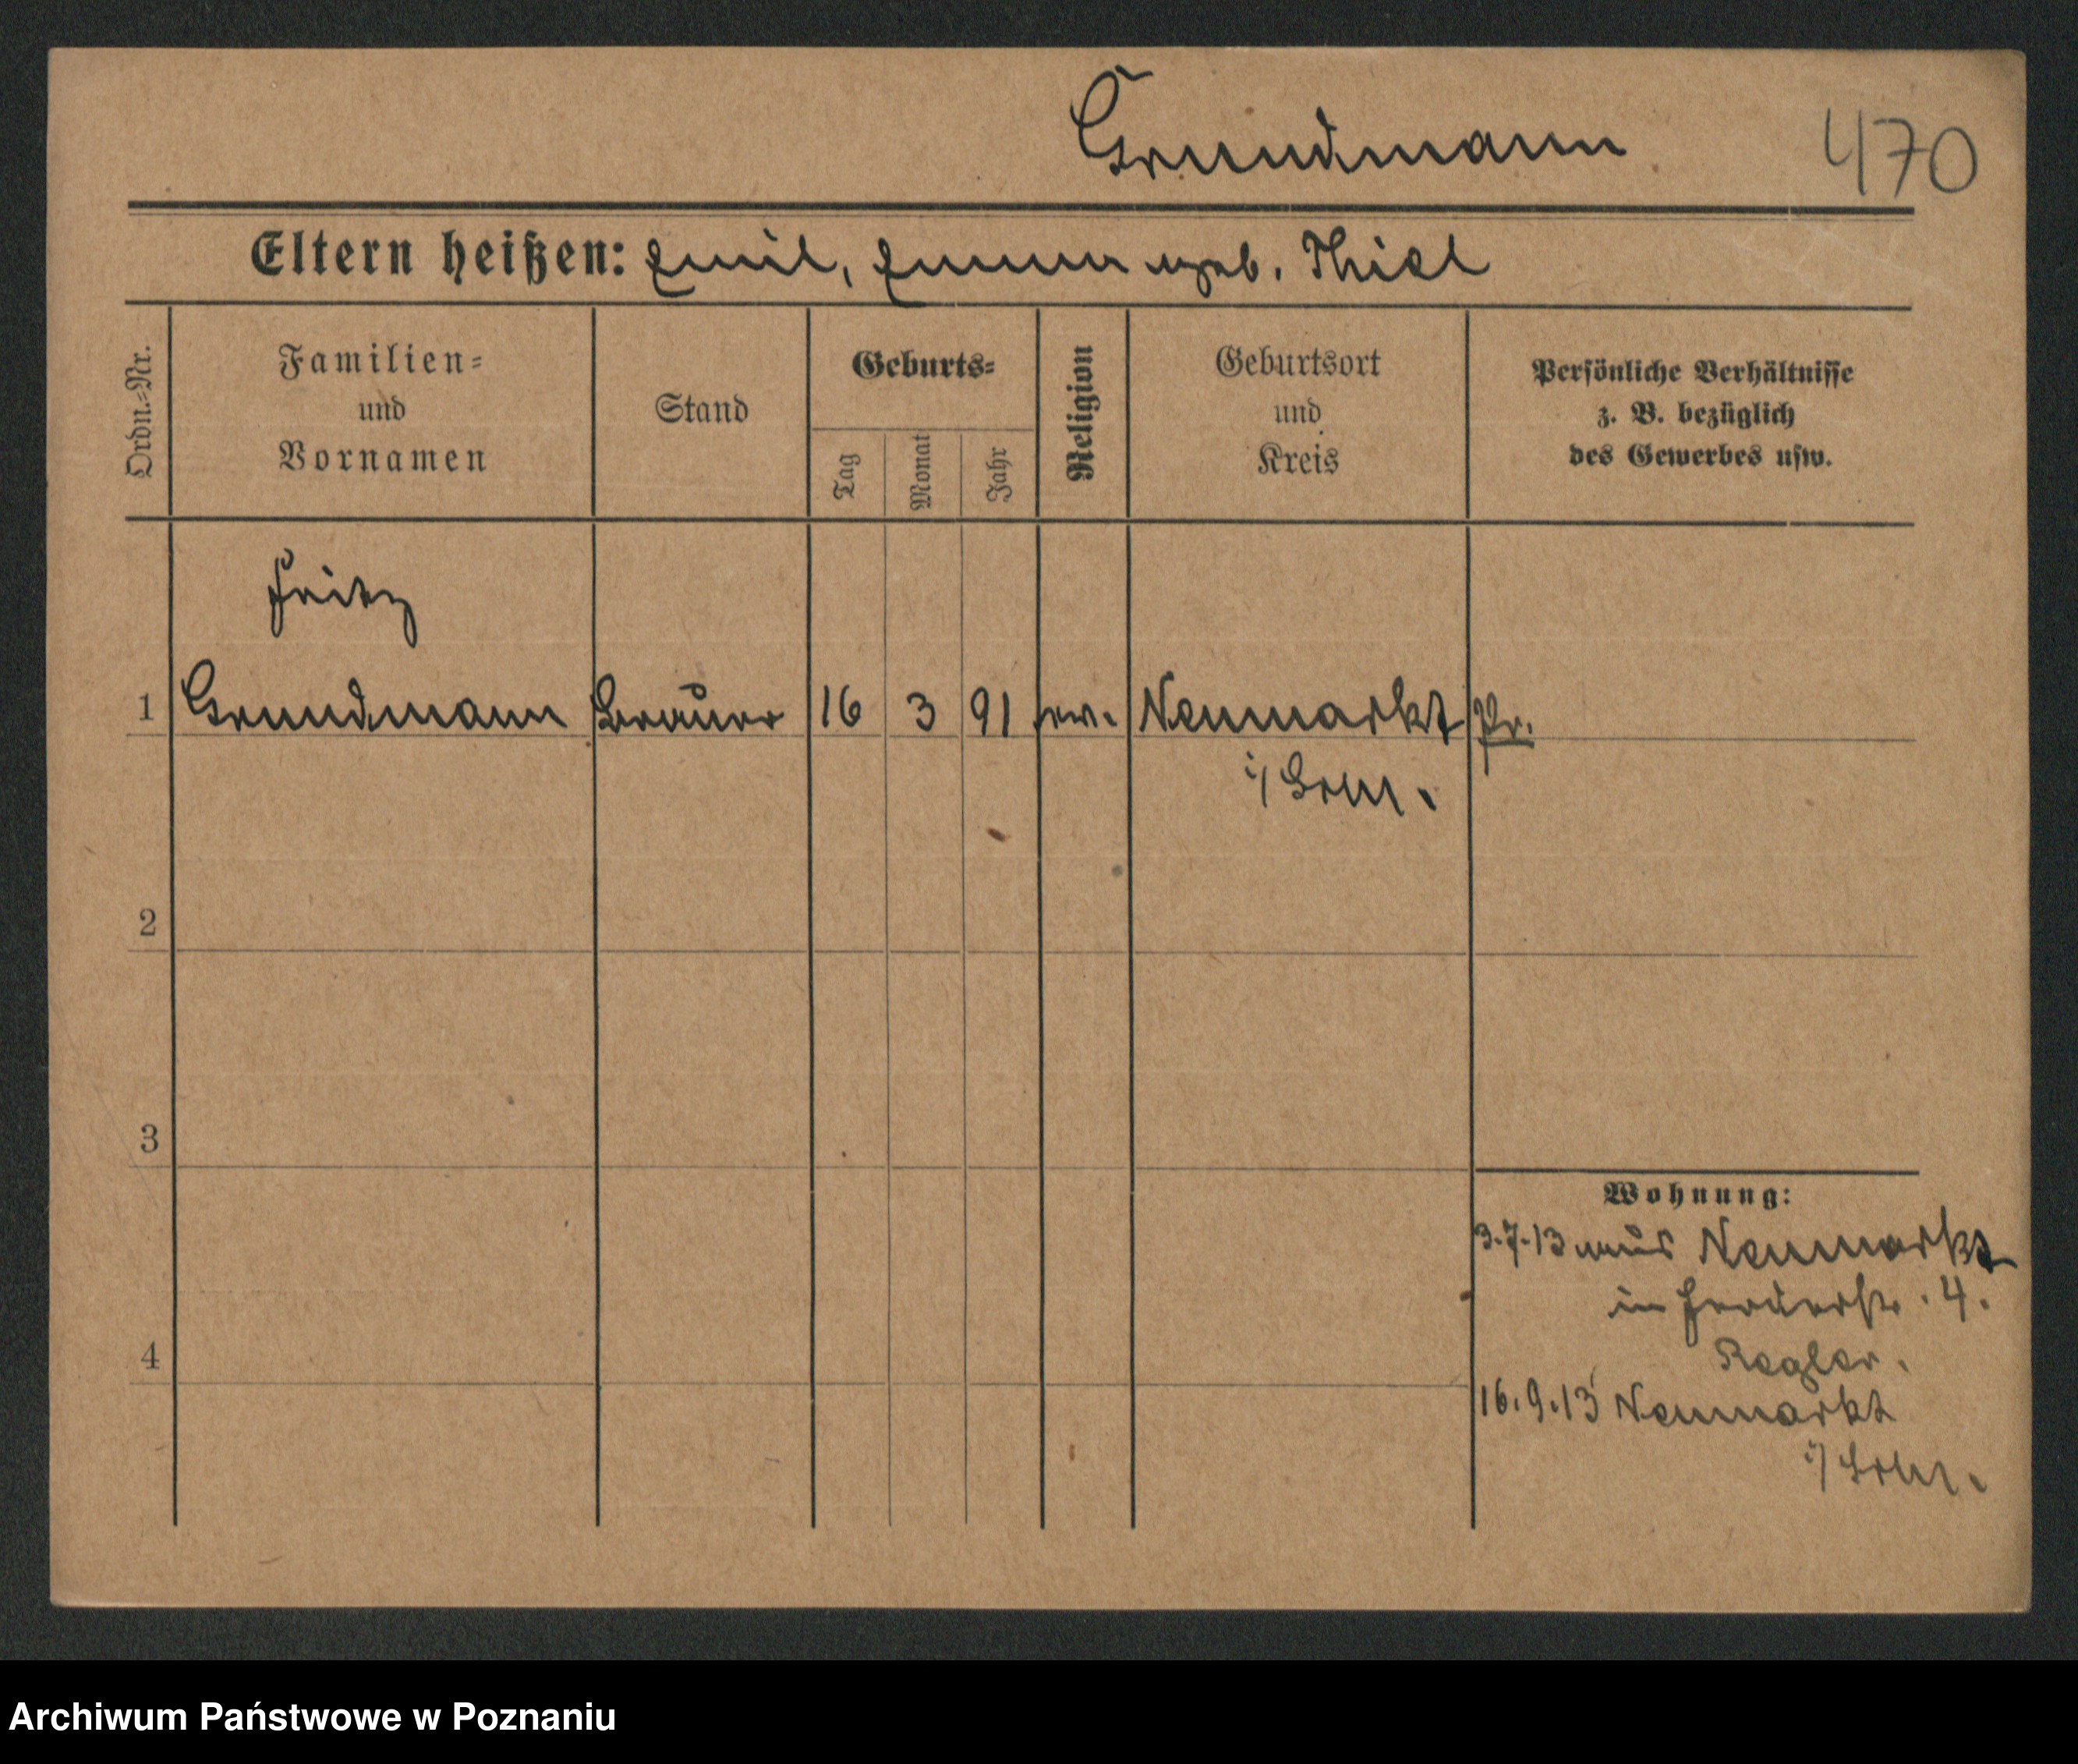 Grundmann
470
Eltern heißen: Emil, Emma geb. Thiel
Ordn.-Nr.
Familien-
und
Vornamen
Stand
Geburts-
Tag
Monat
Jahr
Religion
Geburtsort
und
Kreis
Persönliche Verhältnisse
z. B. bezüglich
des Gewerbes usw.
Fritz
1 Grundmann Brauer 16 3 91 ev. Neumarkt Pr.
i/ Schl.
2
3
4
Wohnung:
3.7.13 aus Neumarkt
in 4.
Kegler.
16.9.13 Neumarkt
i/ Schl.
Archiwum Państwowe w Poznaniu